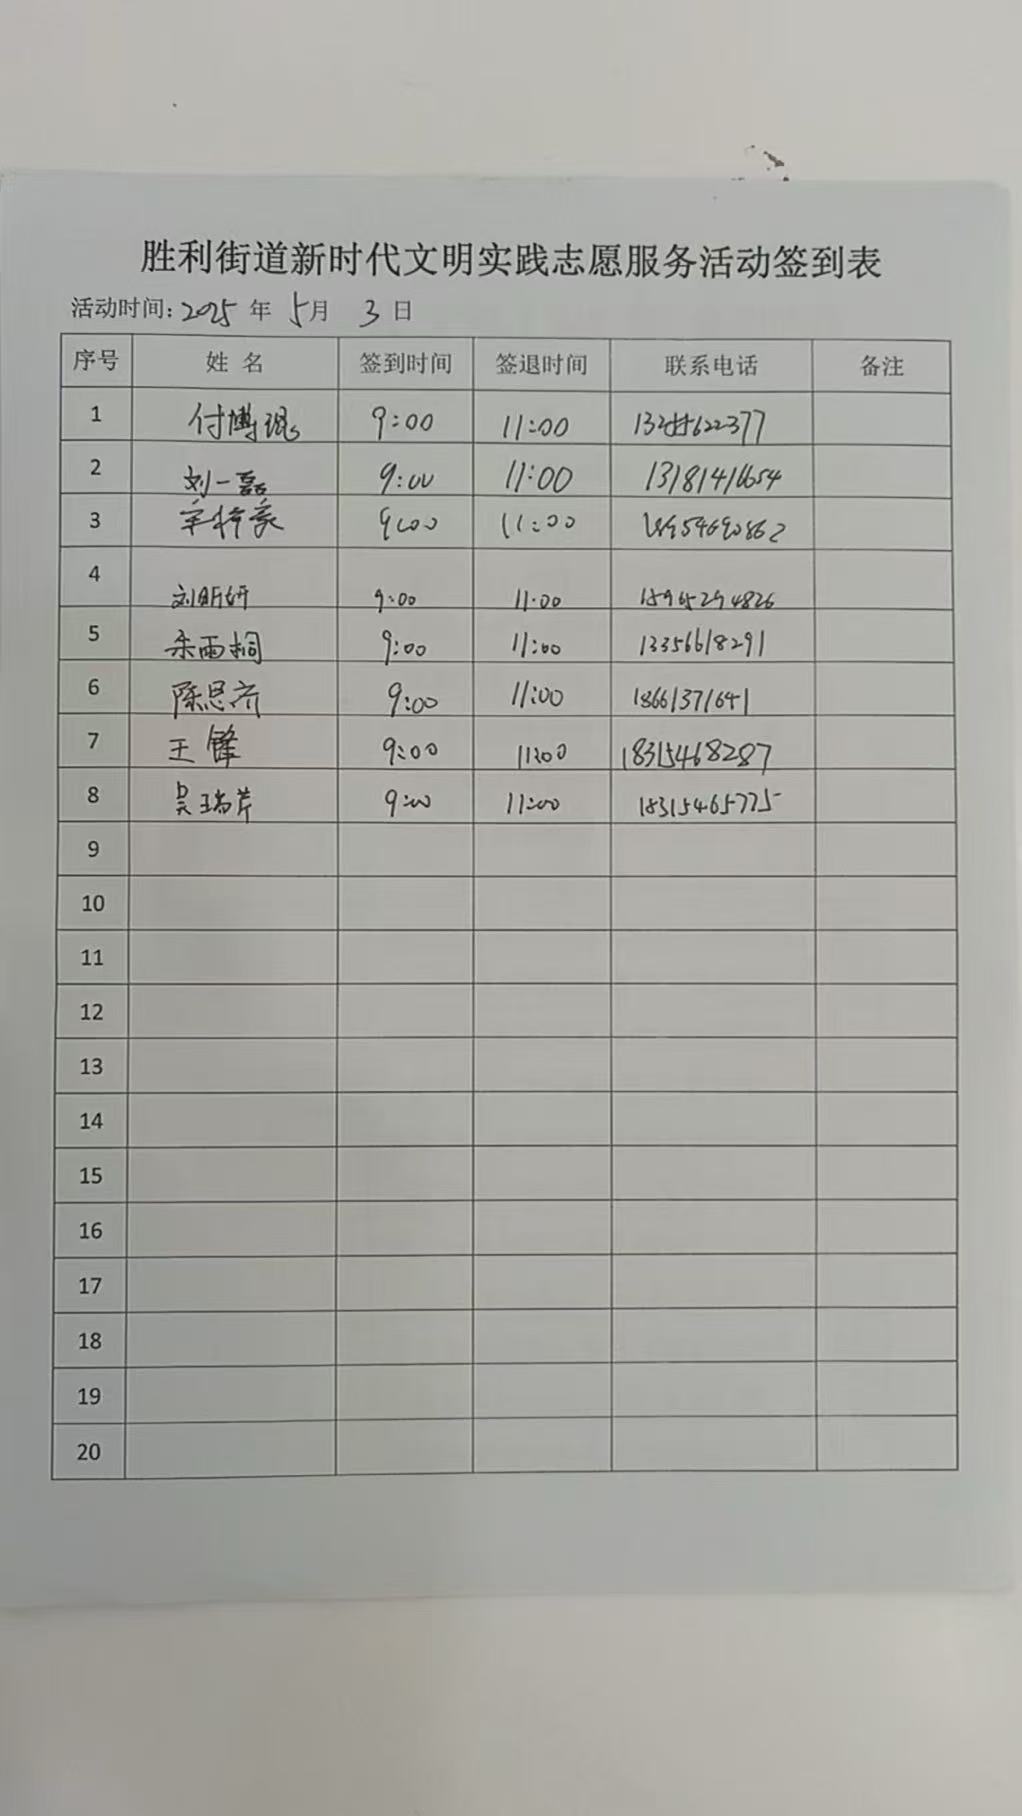 胜利街道新时代文明实践志愿服务活动签到表
活动时间: 2025 年 5月 3 日
序号 姓 名 签到时间 签退时间 联系电话 备注
1 付博琨 9:00 11:00
2 刘一磊 9:00 11:00 13181416654
3 9:00 11:00 18954690862
4 刘昕妍 9:00 11:00 15965294826
5 雨桐 9:00 11:00 13356618291
6 陈思齐 9:00 11:00 18661371641
7 王锋 9:00 11:00 18315468287
8 吴瑞芹 9:00 11:00 18315465775
9
10
11
12
13
14
15
16
17
18
19
20